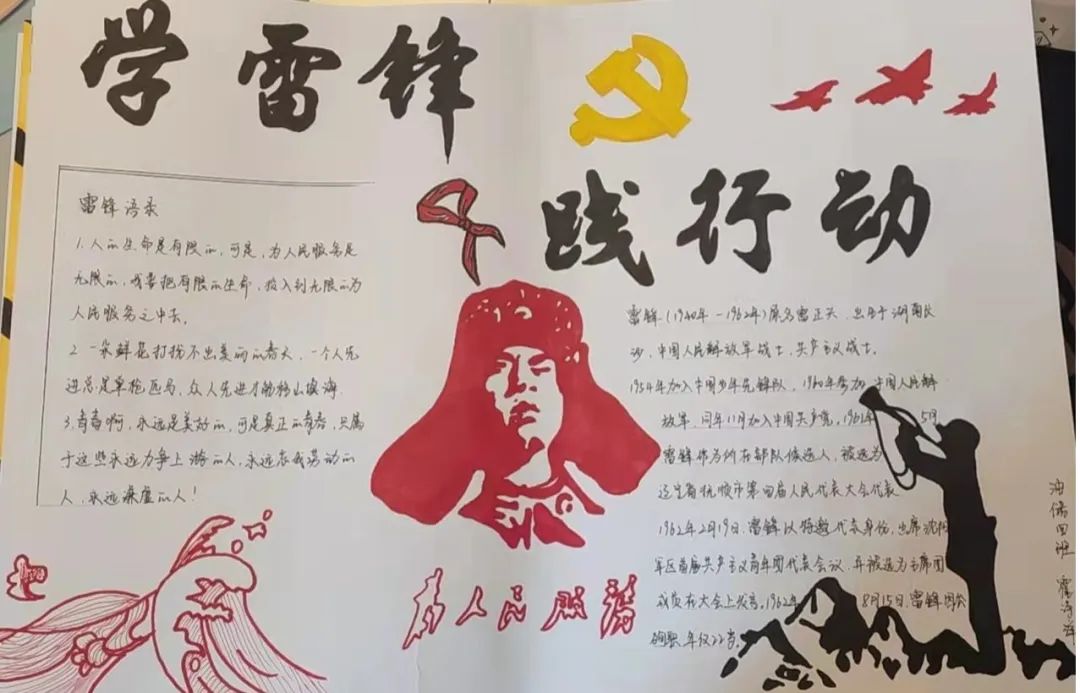 学雷锋
践行动
雷锋语录
1.人的生命是有限的,可是,为人民服务是
无限的,我要把有限的生命,投入到无限的为
人民服务之中去。
2.一朵鲜花打扮不出美丽的春天,一个人先
进总是单枪匹马,众人先进才能移山填海
3.青春啊,永远是美好的,可是真正的青春,只属
于这些永远力争上游的人,永远忘我劳动的
人,永远谦虚的人!
雷锋(1940年-1962年)原名雷正兴,出生于湖南长
沙,中国人民解放军战士,共产主义战士。
1954年加入中国少年先锋队,1960年参加中国人民解
放军,同年11月加入中国共产党。1961年5月
雷锋作为所在部队候选人,被选为
辽宁省抚顺市第四届人民代表大会代表
1962年2月19日,雷锋以特邀代表身份,出席沈阳
军区首届共产主义青年团代表会议,并被选为主席团
成员在大会上发言。1962年8月15日,雷锋因公
殉职,年仅22岁。
为人民服务
油储四班